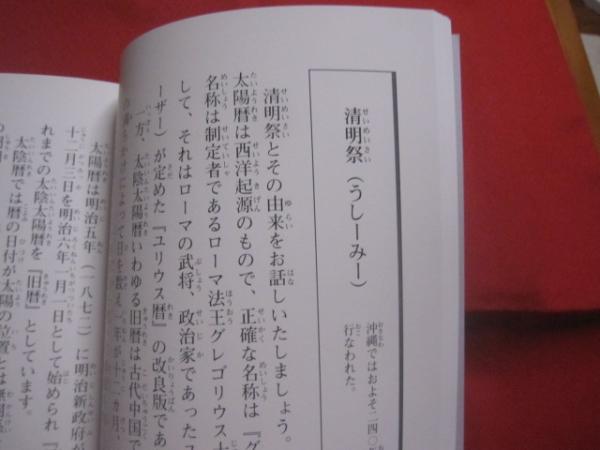 清明祭（うしーみー）
沖縄ではおよそ二四〇
行なわれた。
清明祭とその由来をお話しいたしましょう。
太陽暦は西洋起源のもので、正確な名称は『グ
名称は制定者であるローマ法王グレゴリウス十
して、それはローマの武将、政治家であったユ
ーザー）が定めた『ユリウス暦』の改良版であ
一方、太陰太陽暦いわゆる旧暦は古代中国で
によって日を数え、一年が十二カ月、
太陽暦は明治五年（一八七二）に明治新政府が
十二月三日を明治六年一月一日として始められ『
れまでの太陰太陽暦を『旧暦』としています。
太陰暦では暦の日付が太陽の位置とは無関